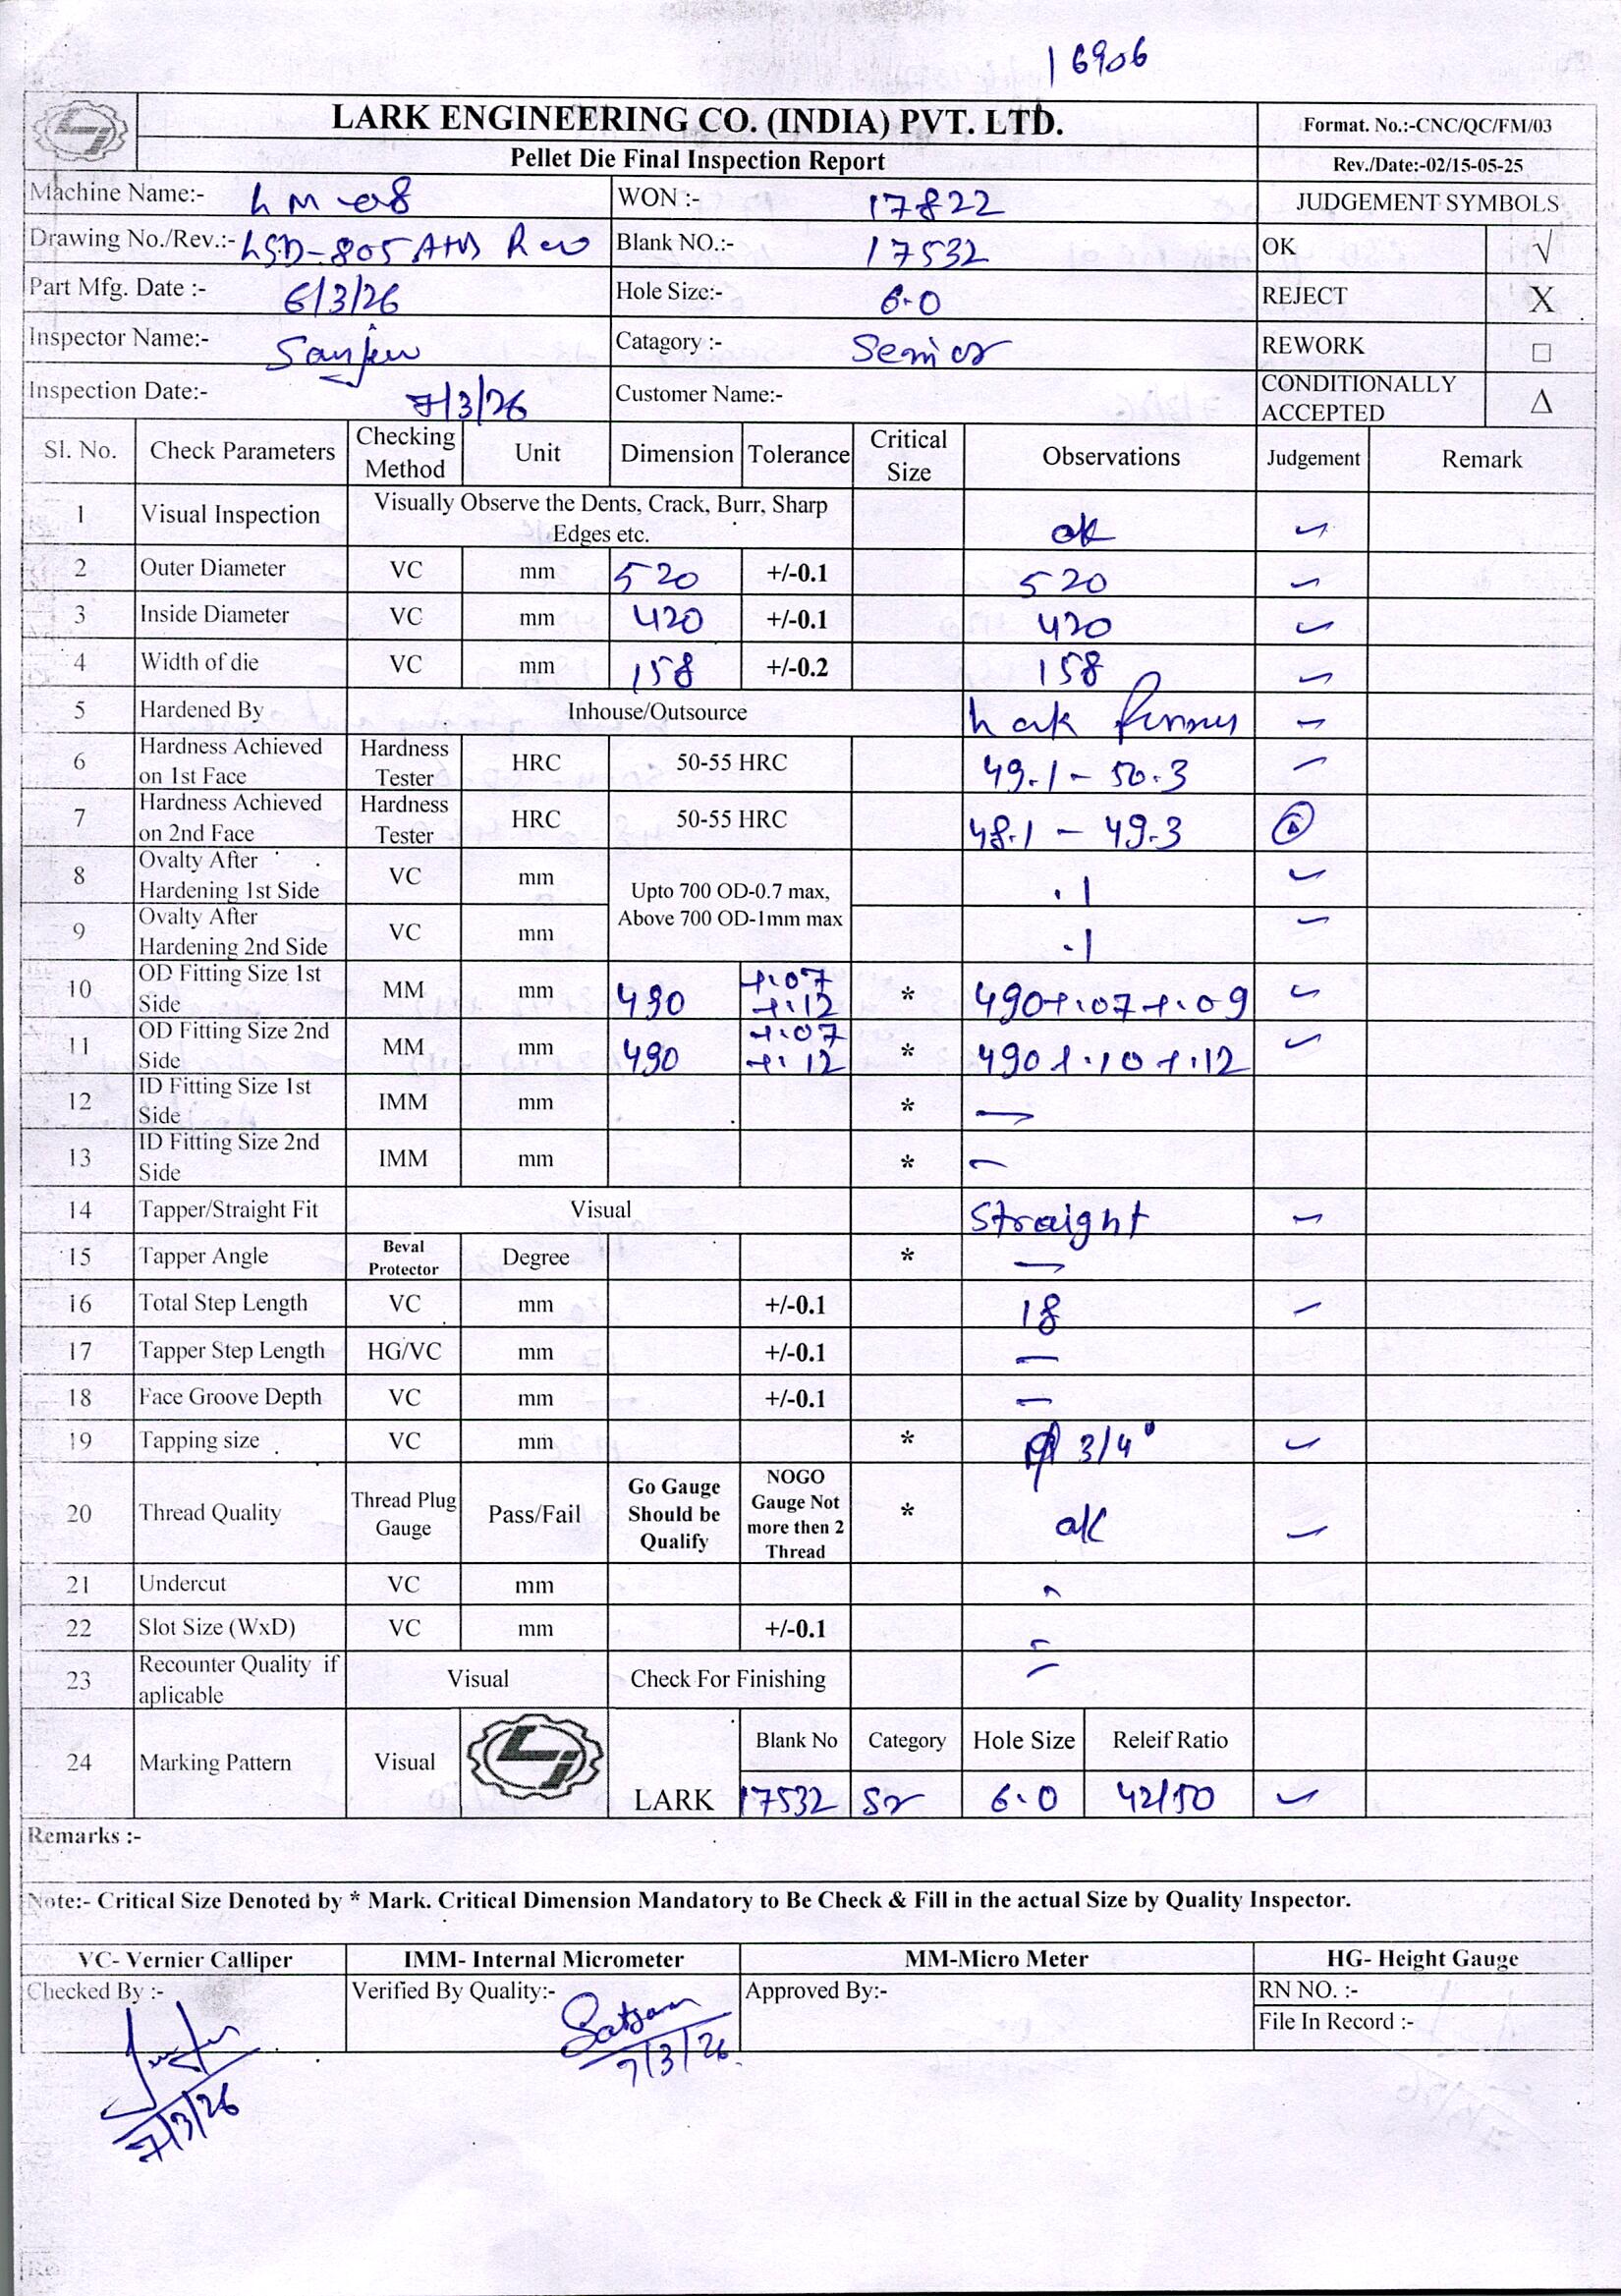 16906
LARK ENGINEERING CO. (INDIA) PVT. LTD.
Format. No.:-CNC/QC/FM/03
Pellet Die Final Inspection Report
Rev./Date:-02/15-05-25
Machine Name:- LM-08 WON :- 17822 JUDGEMENT SYMBOLS
Drawing No./Rev.:- LSD-805 Blank NO.:- 17532 OK √
Part Mfg. Date :- 6/3/26 Hole Size:- 6.0 REJECT X
Inspector Name:- Sanjeev Catagory :- Senior REWORK □
Inspection Date:- 7/3/26 Customer Name:- CONDITIONALLY ACCEPTED Δ
Sl. No. Check Parameters Checking Method Unit Dimension Tolerance Critical Size Observations Judgement Remark
1 Visual Inspection Visually Observe the Dents, Crack, Burr, Sharp Edges etc. ok ✓
2 Outer Diameter VC mm 520 +/-0.1 520 ✓
3 Inside Diameter VC mm 420 +/-0.1 420 ✓
4 Width of die VC mm 158 +/-0.2 158 ✓
5 Hardened By Inhouse/Outsource Lark ✓
6 Hardness Achieved on 1st Face Hardness Tester HRC 50-55 HRC 49.1 - 50.3 ✓
7 Hardness Achieved on 2nd Face Hardness Tester HRC 50-55 HRC 48.1 - 49.3 Δ
8 Ovalty After Hardening 1st Side VC mm Upto 700 OD-0.7 max, Above 700 OD-1mm max .1 ✓
9 Ovalty After Hardening 2nd Side VC mm .1 ✓
10 OD Fitting Size 1st Side MM mm 490 +.07 +.12 * 490+.07+.09 ✓
11 OD Fitting Size 2nd Side MM mm 490 +.07 +.12 * 490+.10+.12 ✓
12 ID Fitting Size 1st Side IMM mm * —
13 ID Fitting Size 2nd Side IMM mm * —
14 Tapper/Straight Fit Visual Straight ✓
15 Tapper Angle Beval Protector Degree * —
16 Total Step Length VC mm +/-0.1 18 ✓
17 Tapper Step Length HG/VC mm +/-0.1 —
18 Face Groove Depth VC mm +/-0.1 —
19 Tapping size VC mm * 3/4" ✓
20 Thread Quality Thread Plug Gauge Pass/Fail Go Gauge Should be Qualify NOGO Gauge Not more then 2 Thread * ok ✓
21 Undercut VC mm -
22 Slot Size (WxD) VC mm +/-0.1 -
23 Recounter Quality if aplicable Visual Check For Finishing -
24 Marking Pattern Visual LARK Blank No Category Hole Size Releif Ratio
17532 Sr 6.0 42/50 ✓
Remarks :-
Note:- Critical Size Denoted by * Mark. Critical Dimension Mandatory to Be Check & Fill in the actual Size by Quality Inspector.
VC- Vernier Calliper IMM- Internal Micrometer MM-Micro Meter HG- Height Gauge
Checked By :- Verified By Quality:- Approved By:- RN NO. :-
File In Record :-
Satnam
7/3/26
7/3/26